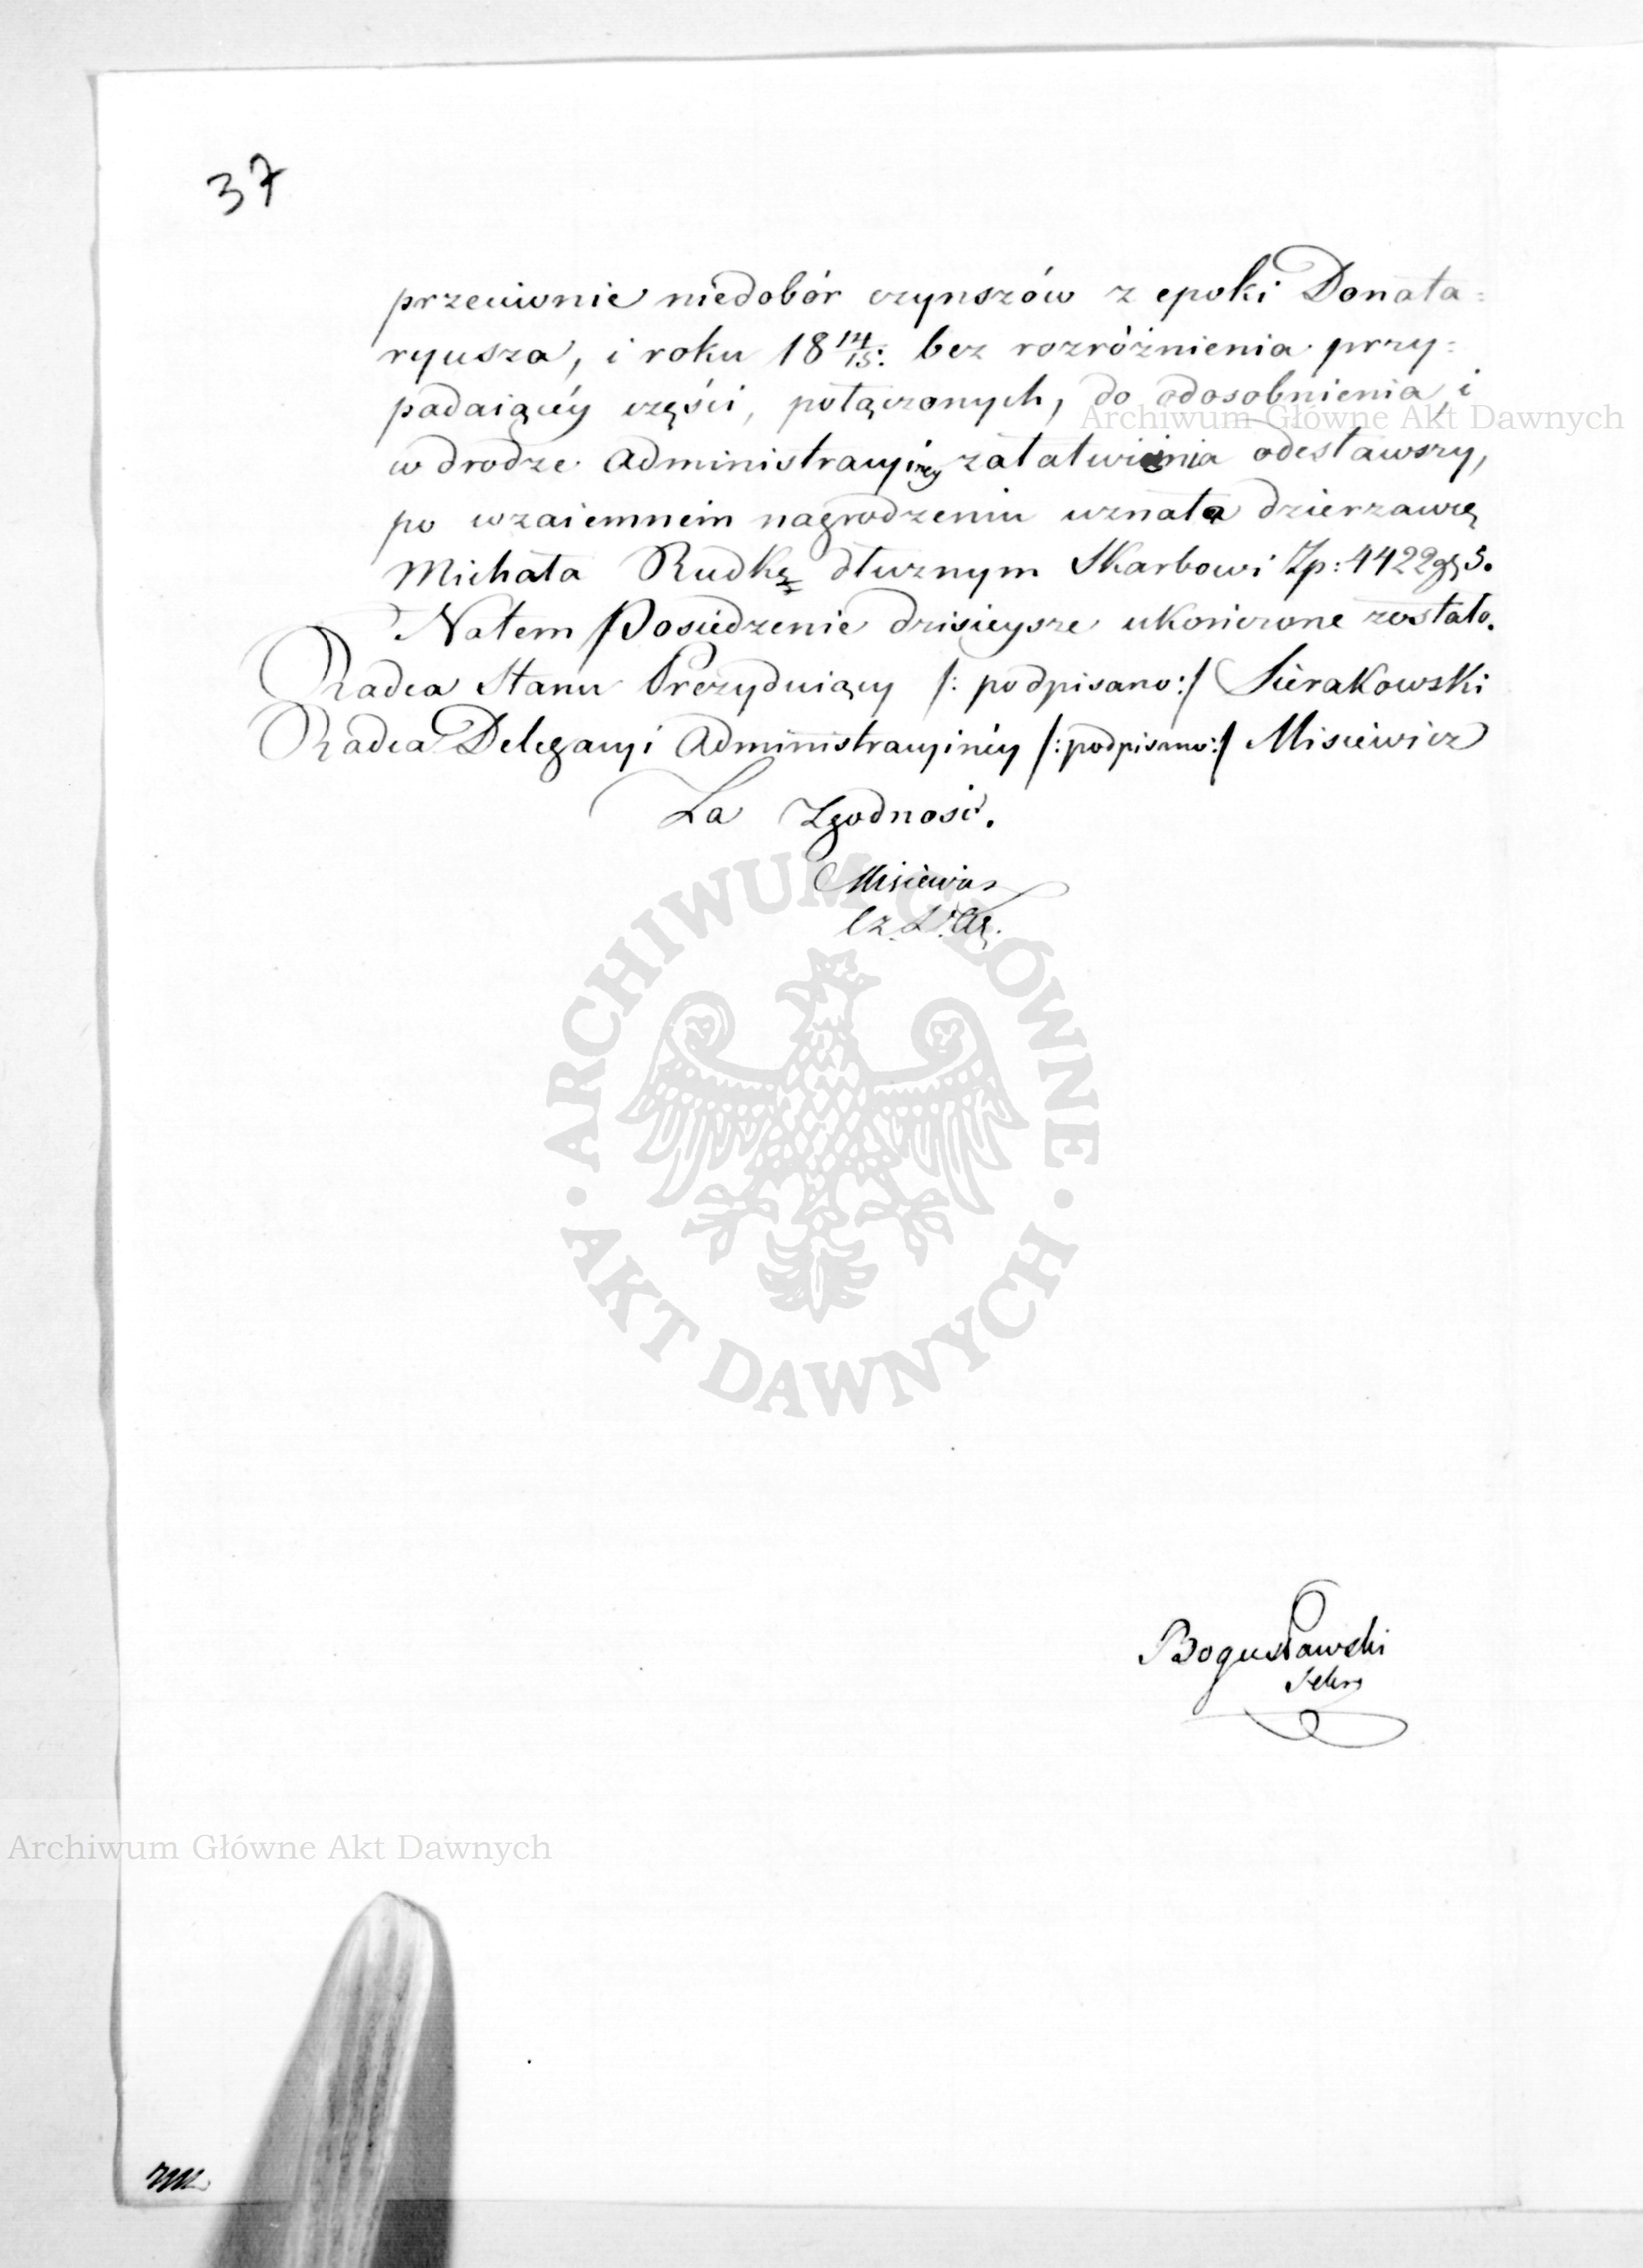 37
przeciwnie niedobór czynszów z epoki Donata=
ryusza, i roku 18 14/15: bez rozróżnienia przy=
padaiącéy części, połączonych, do odosobnienia, i
Archiwum Główne Akt Dawnych
w drodze Administracyiney załatwienia odesławszy,
po wzaiemnem nagrodzeniu uznała dzierzawcę
Michała Rudkę dłużnym Skarbowi Zp: 4422 gr 5.
Natem Posiedzenie dzisieysze ukończone zostało.
Radca Stanu Prezyduiący /: podpisano :/ Sierakowski
Radca Delegacyi Administracyinéy /: podpisano :/ Misiewicz
Za Zgodność.
Misiewicz
ARCHIWUM GŁÓWNE
· AKT DAWNYCH ·
Bogusławski
Sekr
Archiwum Główne Akt Dawnych